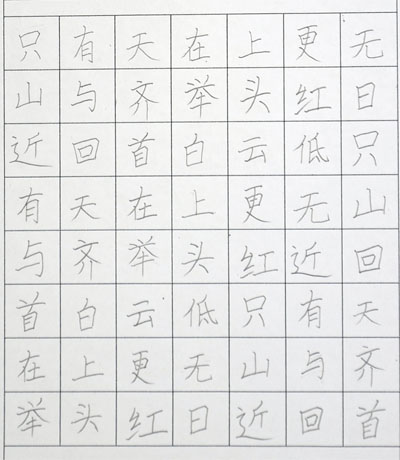 只有天在上更无
山与齐举头红日
近回首白云低只
有天在上更无山
与齐举头红近回
首白云低只有天
在上更无山与齐
举头红日近回首